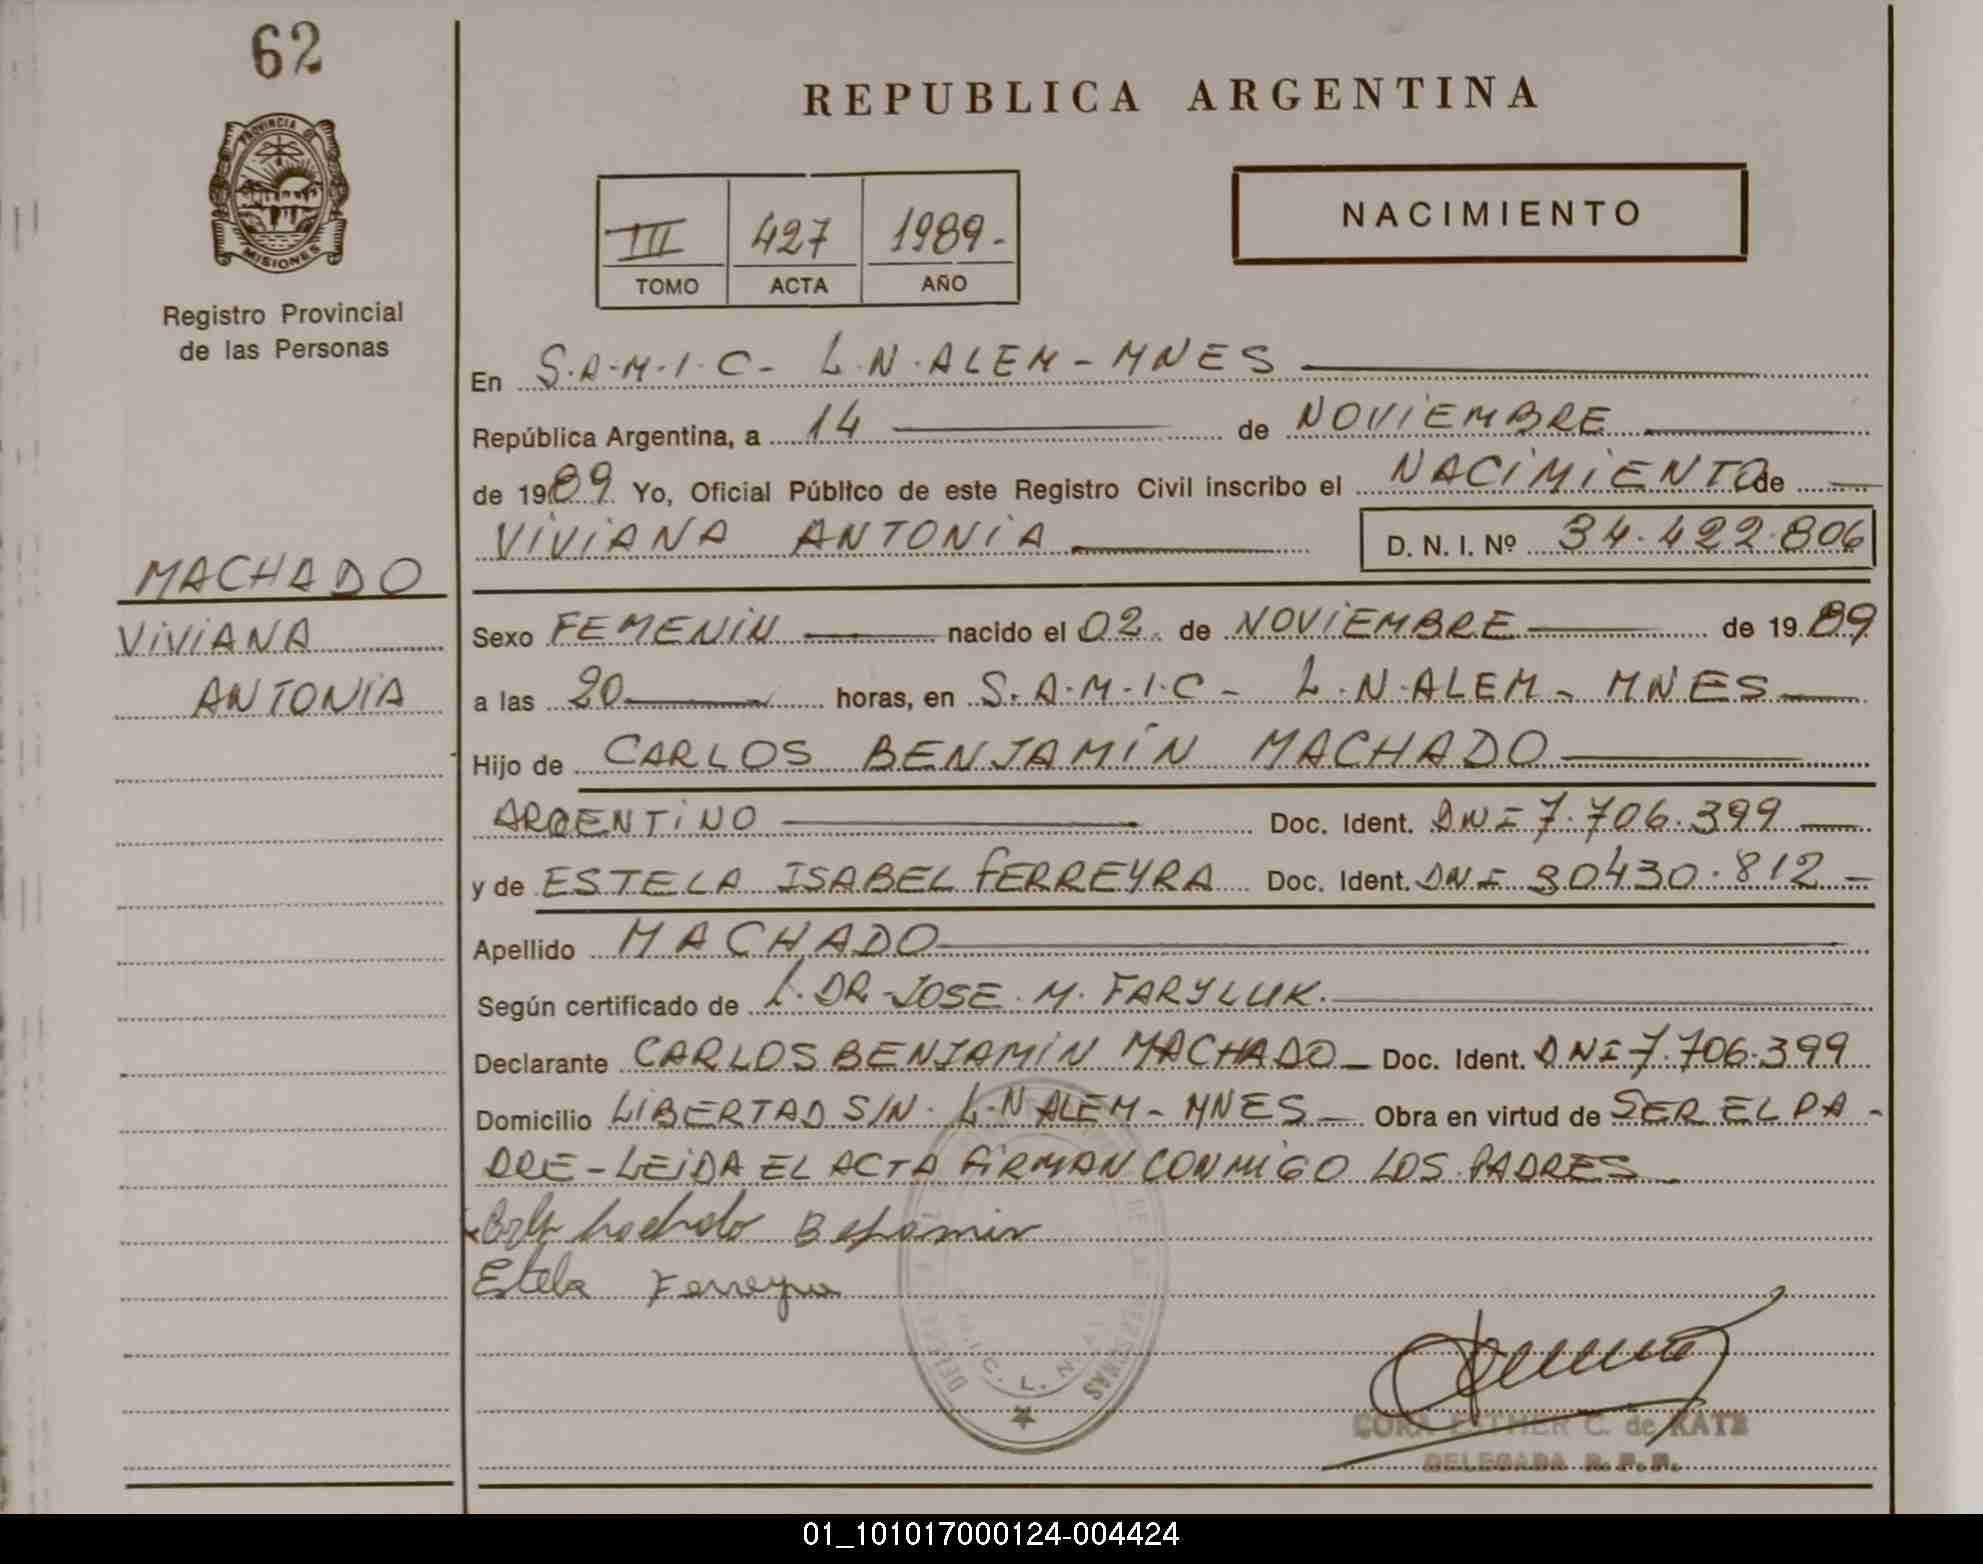 62
REPUBLICA ARGENTINA
PROVINCIA DE
MISIONES
Registro Provincial
de las Personas
III 427 1989.-
TOMO ACTA AÑO
NACIMIENTO
En S.A.M.I.C- L.N.ALEM-MNES
República Argentina, a 14 de NOVIEMBRE
de 1989 Yo, Oficial Público de este Registro Civil inscribo el NACIMIENTO de
VIVIANA ANTONIA D. N. I. Nº 34.422.806
MACHADO
VIVIANA
ANTONIA
Sexo FEMENIN nacido el 02 de NOVIEMBRE de 1989
a las 20 horas, en S.A.M.I.C- L.N.ALEM-MNES
Hijo de CARLOS BENJAMÍN MACHADO
ARGENTINO Doc. Ident. DNI 7.706.399
y de ESTELA ISABEL FERREYRA Doc. Ident. DNI 30430.812-
Apellido MACHADO
Según certificado de L.DR-JOSE.M.FARYLUK.
Declarante CARLOS BENJAMÍN MACHADO- Doc. Ident. DNI 7.706.399
Domicilio LIBERTAD S/N. L.N ALEM-MNES- Obra en virtud de SER EL PA-
DRE-LEIDA EL ACTA FIRMAN CONMIGO LOS PADRES
Machado Benjamin
Estela Ferreyra
CORA ESTHER C. de KATZ
DELEGADA R.P.P.
01_101017000124-004424